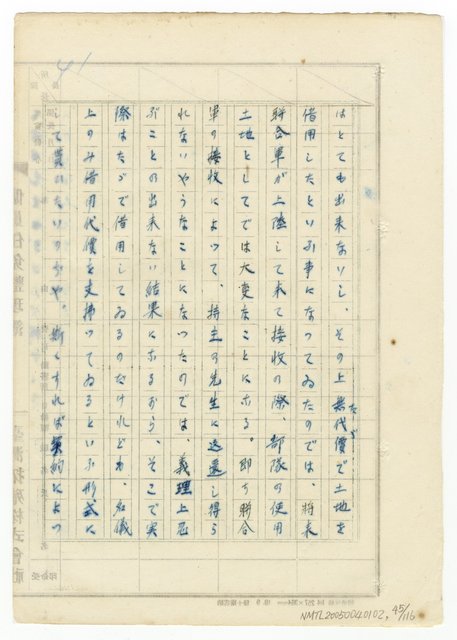 41
はとても出来ないし、その上無代價で土地を
たゞ
借用したといふ事になつてゐたのでは、将来
聯合軍が上陸して来て接收の際、部隊の使用
土地としてでは大変なことになる。即ち聯合
軍の接收によつて、持主の先生に返還し得ら
れないやうなことになつたのでは、義理上忍
ぶことの出来ない結果になるから、そこで実
際はたゞで借用してゐるのだけれども、名儀
上のみ借用代價を支拂つてゐるといふ形式に
して貰ひたいのだや。斯くすれば契約によつ
NMTL20050040102, 45/116